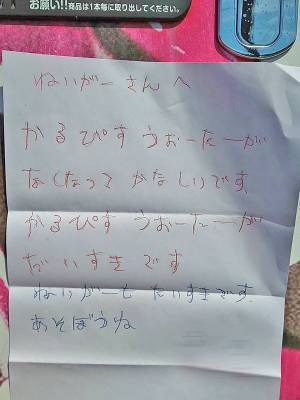 お願い!!商品は1本毎に取り出してください。
ねいがーさんへ
かるぴすうぉーたーが
なくなってかなしいです
かるぴすうぉーたーが
だいすきです
ねいがーもだいすきです
あそぼうね